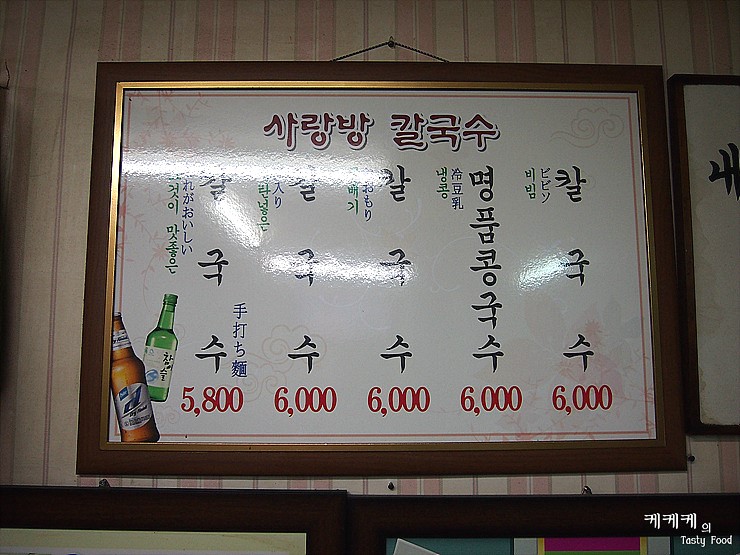 사랑방 칼국수
이것이 맛좋은
れがおいしい
칼국수
手打ち麵
5,800
入り
칼국수
6,000
곱배기
おもり
칼국수
6,000
냉콩
冷豆乳
명품콩국수
6,000
비빔
ビビン
칼국수
6,000
참이슬
내
케케케의
Tasty Food